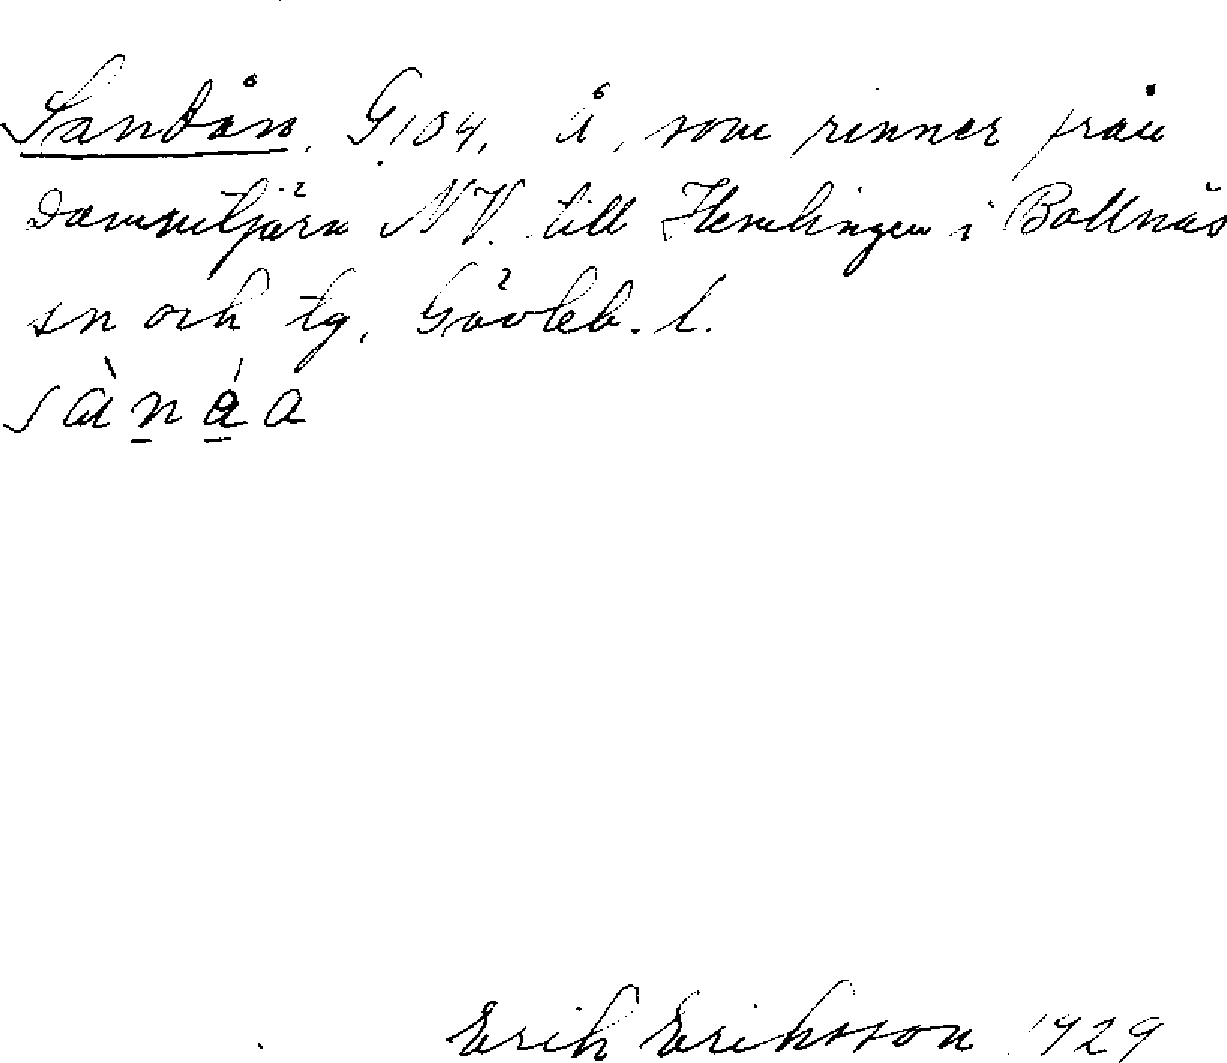 Sandån. G.104. Å, som rinner från
Damsutjärn NV. till Hemlingen i Bollnäs
sn och tg, Gävleb. l.
sànáa
Erik Eriksson 1929